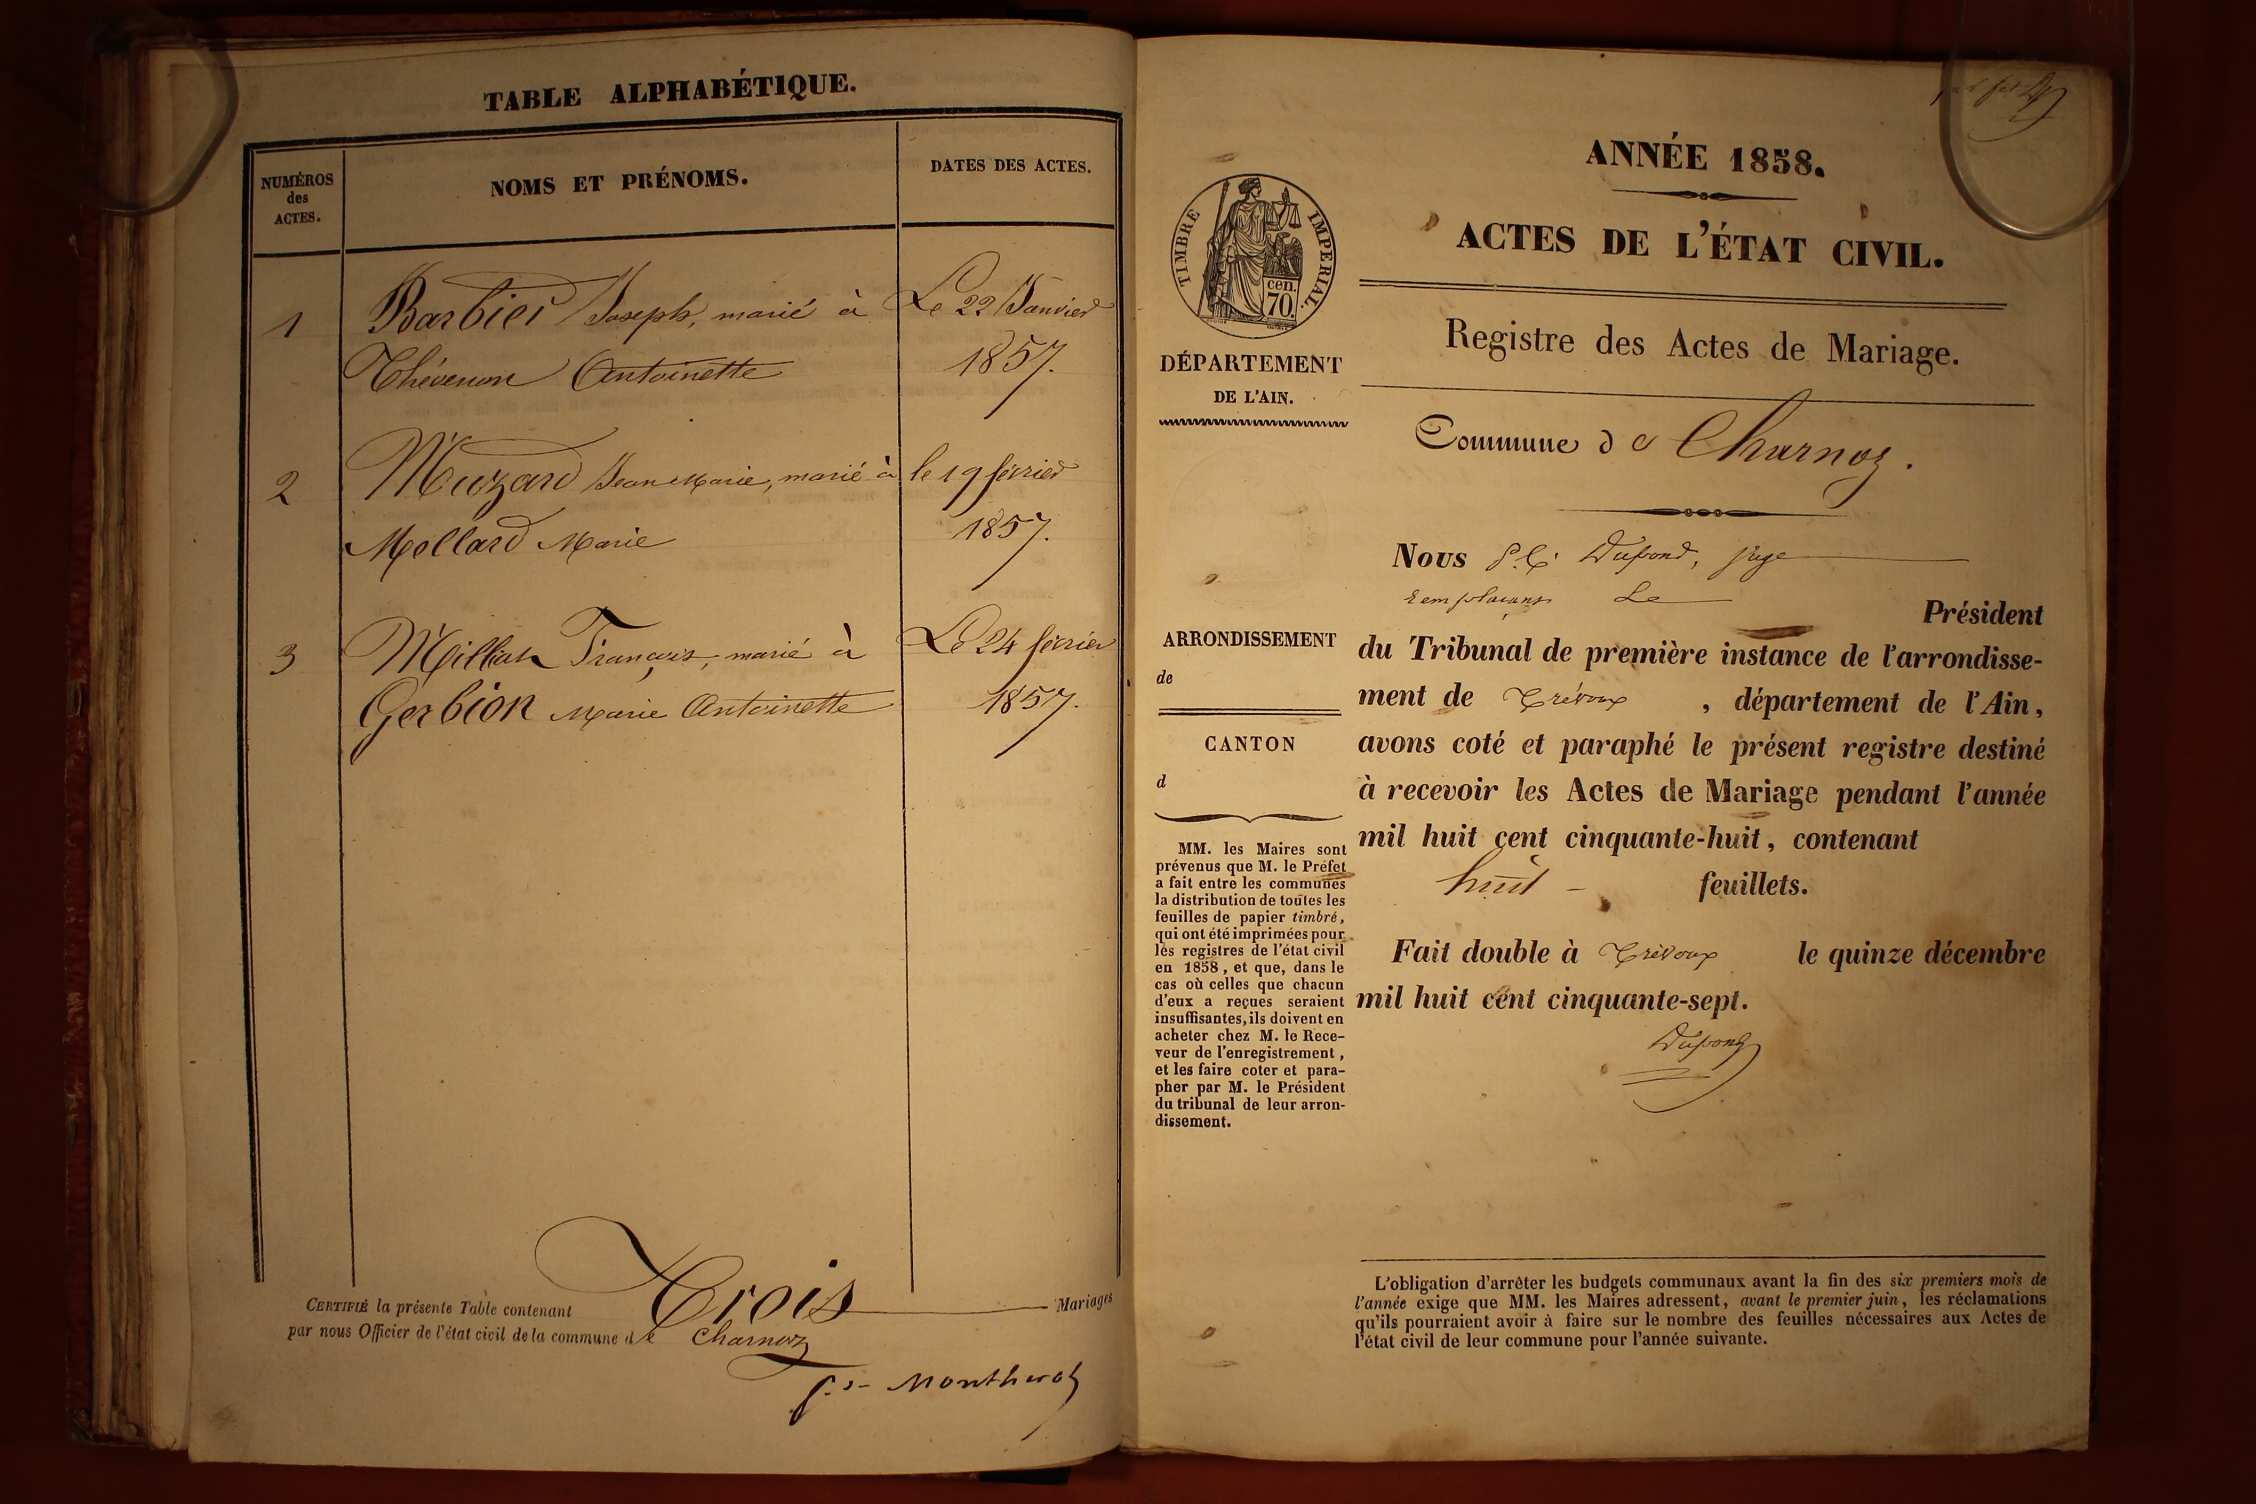 TABLE ALPHABÉTIQUE.
NUMÉROS
des
ACTES.
NOMS ET PRÉNOMS.
DATES DES ACTES.
1
Barbier Joseph, marié à
Le 22 Janvier
Thévenon Antoinette
1857.
2
Muzard Jean Marie, marié à
le 19 février
Mollard Marie
1857.
3
Millan François, marié à
Le 24 février
Gerbion Marie Antoinette
1857.
CERTIFIÉ la présente Table contenant Trois Mariages
par nous Officier de l'état civil de la commune de Charnoz
Montherot
ANNÉE 1858.
ACTES DE L'ÉTAT CIVIL.
TIMBRE IMPERIAL.
cen.
70.
Registre des Actes de Mariage.
DÉPARTEMENT
DE L'AIN.
Commune de Charnoz.
Nous Dupond, juge
remplaçant Le
Président
du Tribunal de première instance de l'arrondisse-
ment de Trévoux , département de l'Ain,
avons coté et paraphé le présent registre destiné
à recevoir les Actes de Mariage pendant l'année
mil huit cent cinquante-huit, contenant
huit - feuillets.
Fait double à Trévoux le quinze décembre
mil huit cent cinquante-sept.
Dupond
ARRONDISSEMENT
de
CANTON
d
MM. les Maires sont
prévenus que M. le Préfet
a fait entre les communes
la distribution de toutes les
feuilles de papier timbré,
qui ont été imprimées pour
les registres de l'état civil
en 1858, et que, dans le
cas où celles que chacun
d'eux a reçues seraient
insuffisantes, ils doivent en
acheter chez M. le Rece-
veur de l'enregistrement,
et les faire coter et para-
pher par M. le Président
du tribunal de leur arron-
dissement.
L'obligation d'arrêter les budgets communaux avant la fin des six premiers mois de
l'année exige que MM. les Maires adressent, avant le premier juin, les réclamations
qu'ils pourraient avoir à faire sur le nombre des feuilles nécessaires aux Actes de
l'état civil de leur commune pour l'année suivante.